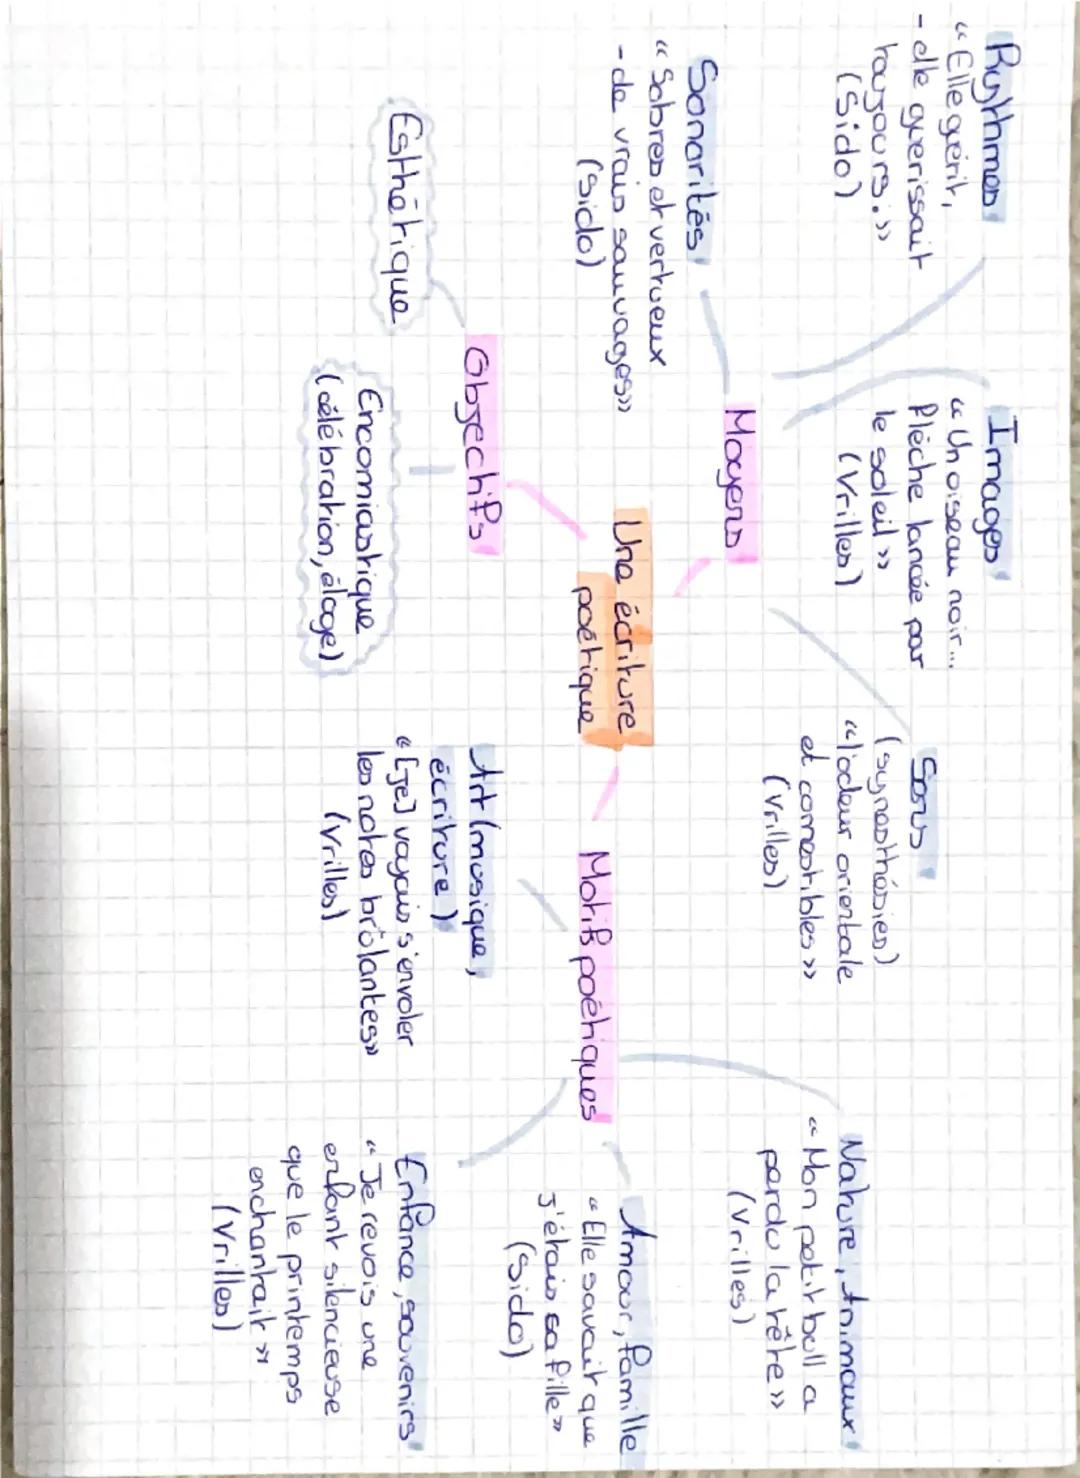 Rythmes
"Elle guérit,
- elle guerissait
toujours. »
(Sido)
Images
"Un oiseau noir...
Flèche lancée par
le soleil »
(Vrilles)
Sens
(synesthésies)
"l'odeur orientale
et comestibles »
(Vrilles)
Nature, Animaux
"Mon petit bull a
perdu la tête »
(Vrilles)
Sonorités
"Sobres et vertueux
- de vrais sauvages»
(Sido)
Moyens
Une écriture
poétique
Motifs poétiques
Amour, famille
"Elle savait que
j'étais sa fille»
(Sido)
Objectifs
Esthétique
Encomiastique
(célébration, éloge)
Art (musique,
écriture)
"[je] voyais s'envoler
les notes brûlantes»
(Vrilles)
Enfance, souvenirs
"Je revois une
enfant silencieuse
que le printemps
enchantait »
(Vrilles)